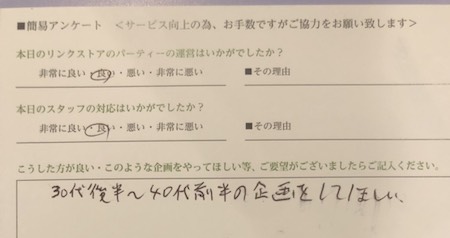 ■簡易アンケート ＜サービス向上の為、お手数ですがご協力をお願い致します＞
本日のリンクストアのパーティーの運営はいかがでしたか？
非常に良い・良い・悪い・非常に悪い ■その理由
本日のスタッフの対応はいかがでしたか？
非常に良い・良い・悪い・非常に悪い ■その理由
こうした方が良い・このような企画をやってほしい等、ご要望がございましたらご記入ください。
30代後半～40代前半の企画をしてほしい。